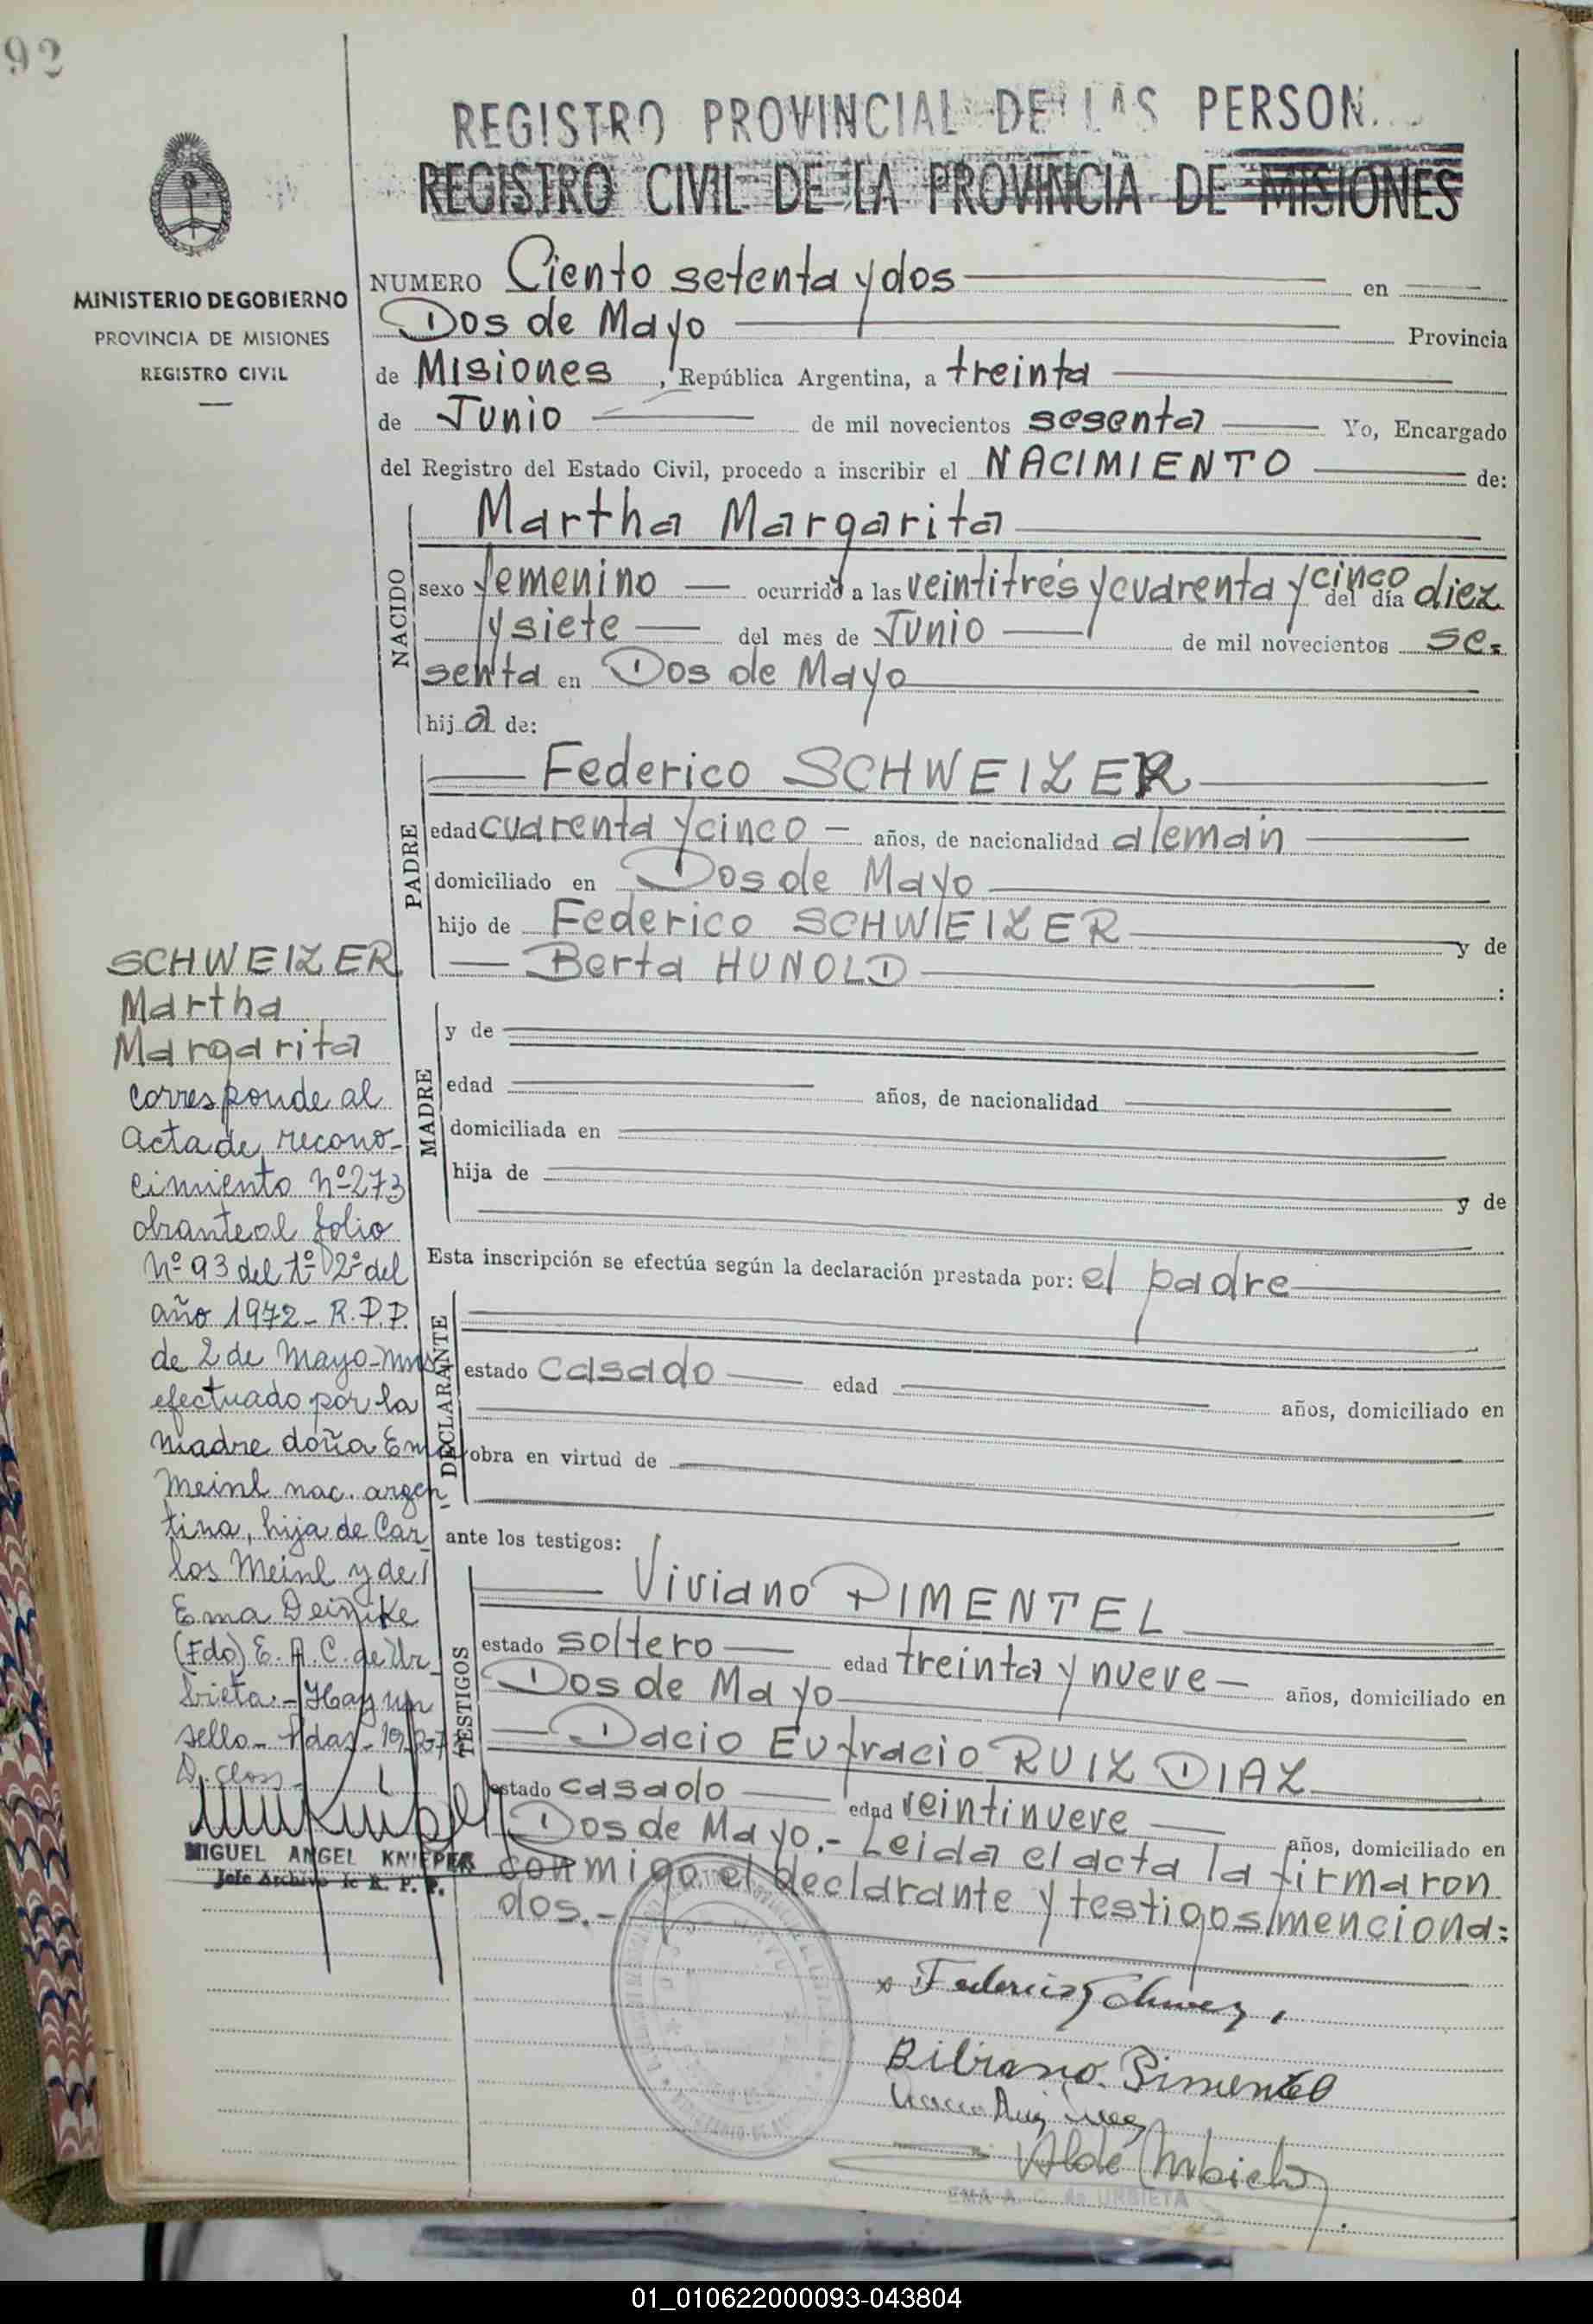 92
REGISTRO PROVINCIAL DE LAS PERSON.
REGISTRO CIVIL DE LA PROVINCIA DE MISIONES
MINISTERIO DE GOBIERNO
PROVINCIA DE MISIONES
REGISTRO CIVIL
NUMERO Ciento setenta y dos en
Dos de Mayo Provincia
de Misiones, República Argentina, a treinta
de Junio de mil novecientos sesenta Yo, Encargado
del Registro del Estado Civil, procedo a inscribir el NACIMIENTO de:
NACIDO
Martha Margarita
sexo femenino ocurrido a las veintitrés y cuarenta y cinco del día diez
y siete del mes de Junio de mil novecientos se=
senta en Dos de Mayo
hija de:
PADRE
Federico SCHWEIZER
edad cuarenta y cinco años, de nacionalidad alemán
domiciliado en Dos de Mayo
hijo de Federico SCHWEIZER y de
Berta HUNOLD :
MADRE
y de
edad años, de nacionalidad
domiciliada en
hija de
y de
Esta inscripción se efectúa según la declaración prestada por: el padre
DECLARANTE
estado casado edad
años, domiciliado en
obra en virtud de
ante los testigos:
TESTIGOS
Viviano PIMENTEL
estado soltero edad treinta y nueve años, domiciliado en
Dos de Mayo
Dacio Eufracio RUIZ DIAZ
estado casado edad veintinueve años, domiciliado en
Dos de Mayo.- Leida el acta la firmaron
conmigo el declarante y testigos menciona=
dos.-
SCHWEIZER
Martha
Margarita
corresponde al
acta de recono-
cimiento nº 273
obrante al folio
nº 93 del 1º 2º del
año 1972 - R.P.P.
de 2 de Mayo - Mns
efectuado por la
madre doña Ema
Meinl nac. argen
tina, hija de Car
los Meinl y de
Ema Deinike
(Fdo) E. A. C. de Ur
bieta.- Hay un
sello - Pdas -
D. Closs -
MIGUEL ANGEL KNIEPER
Jefe Archivo de R. P. P.
x Federico
Bibiano Pimentel
EMA A. C. de URBIETA
01_010622000093-043804